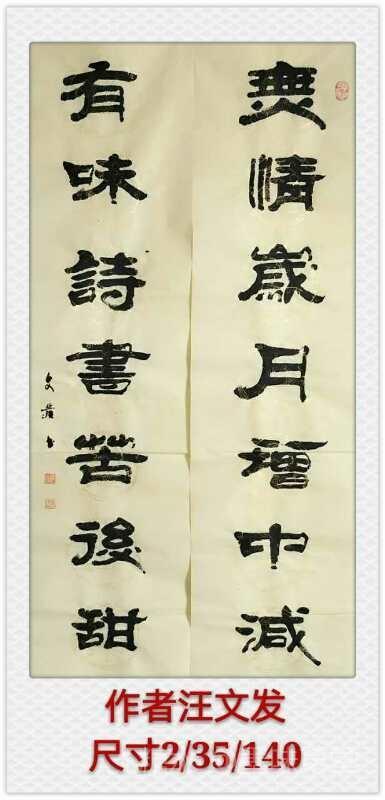 無情歲月增中減
有味詩書苦後甜
文發書
作者汪文发
尺寸2/35/140